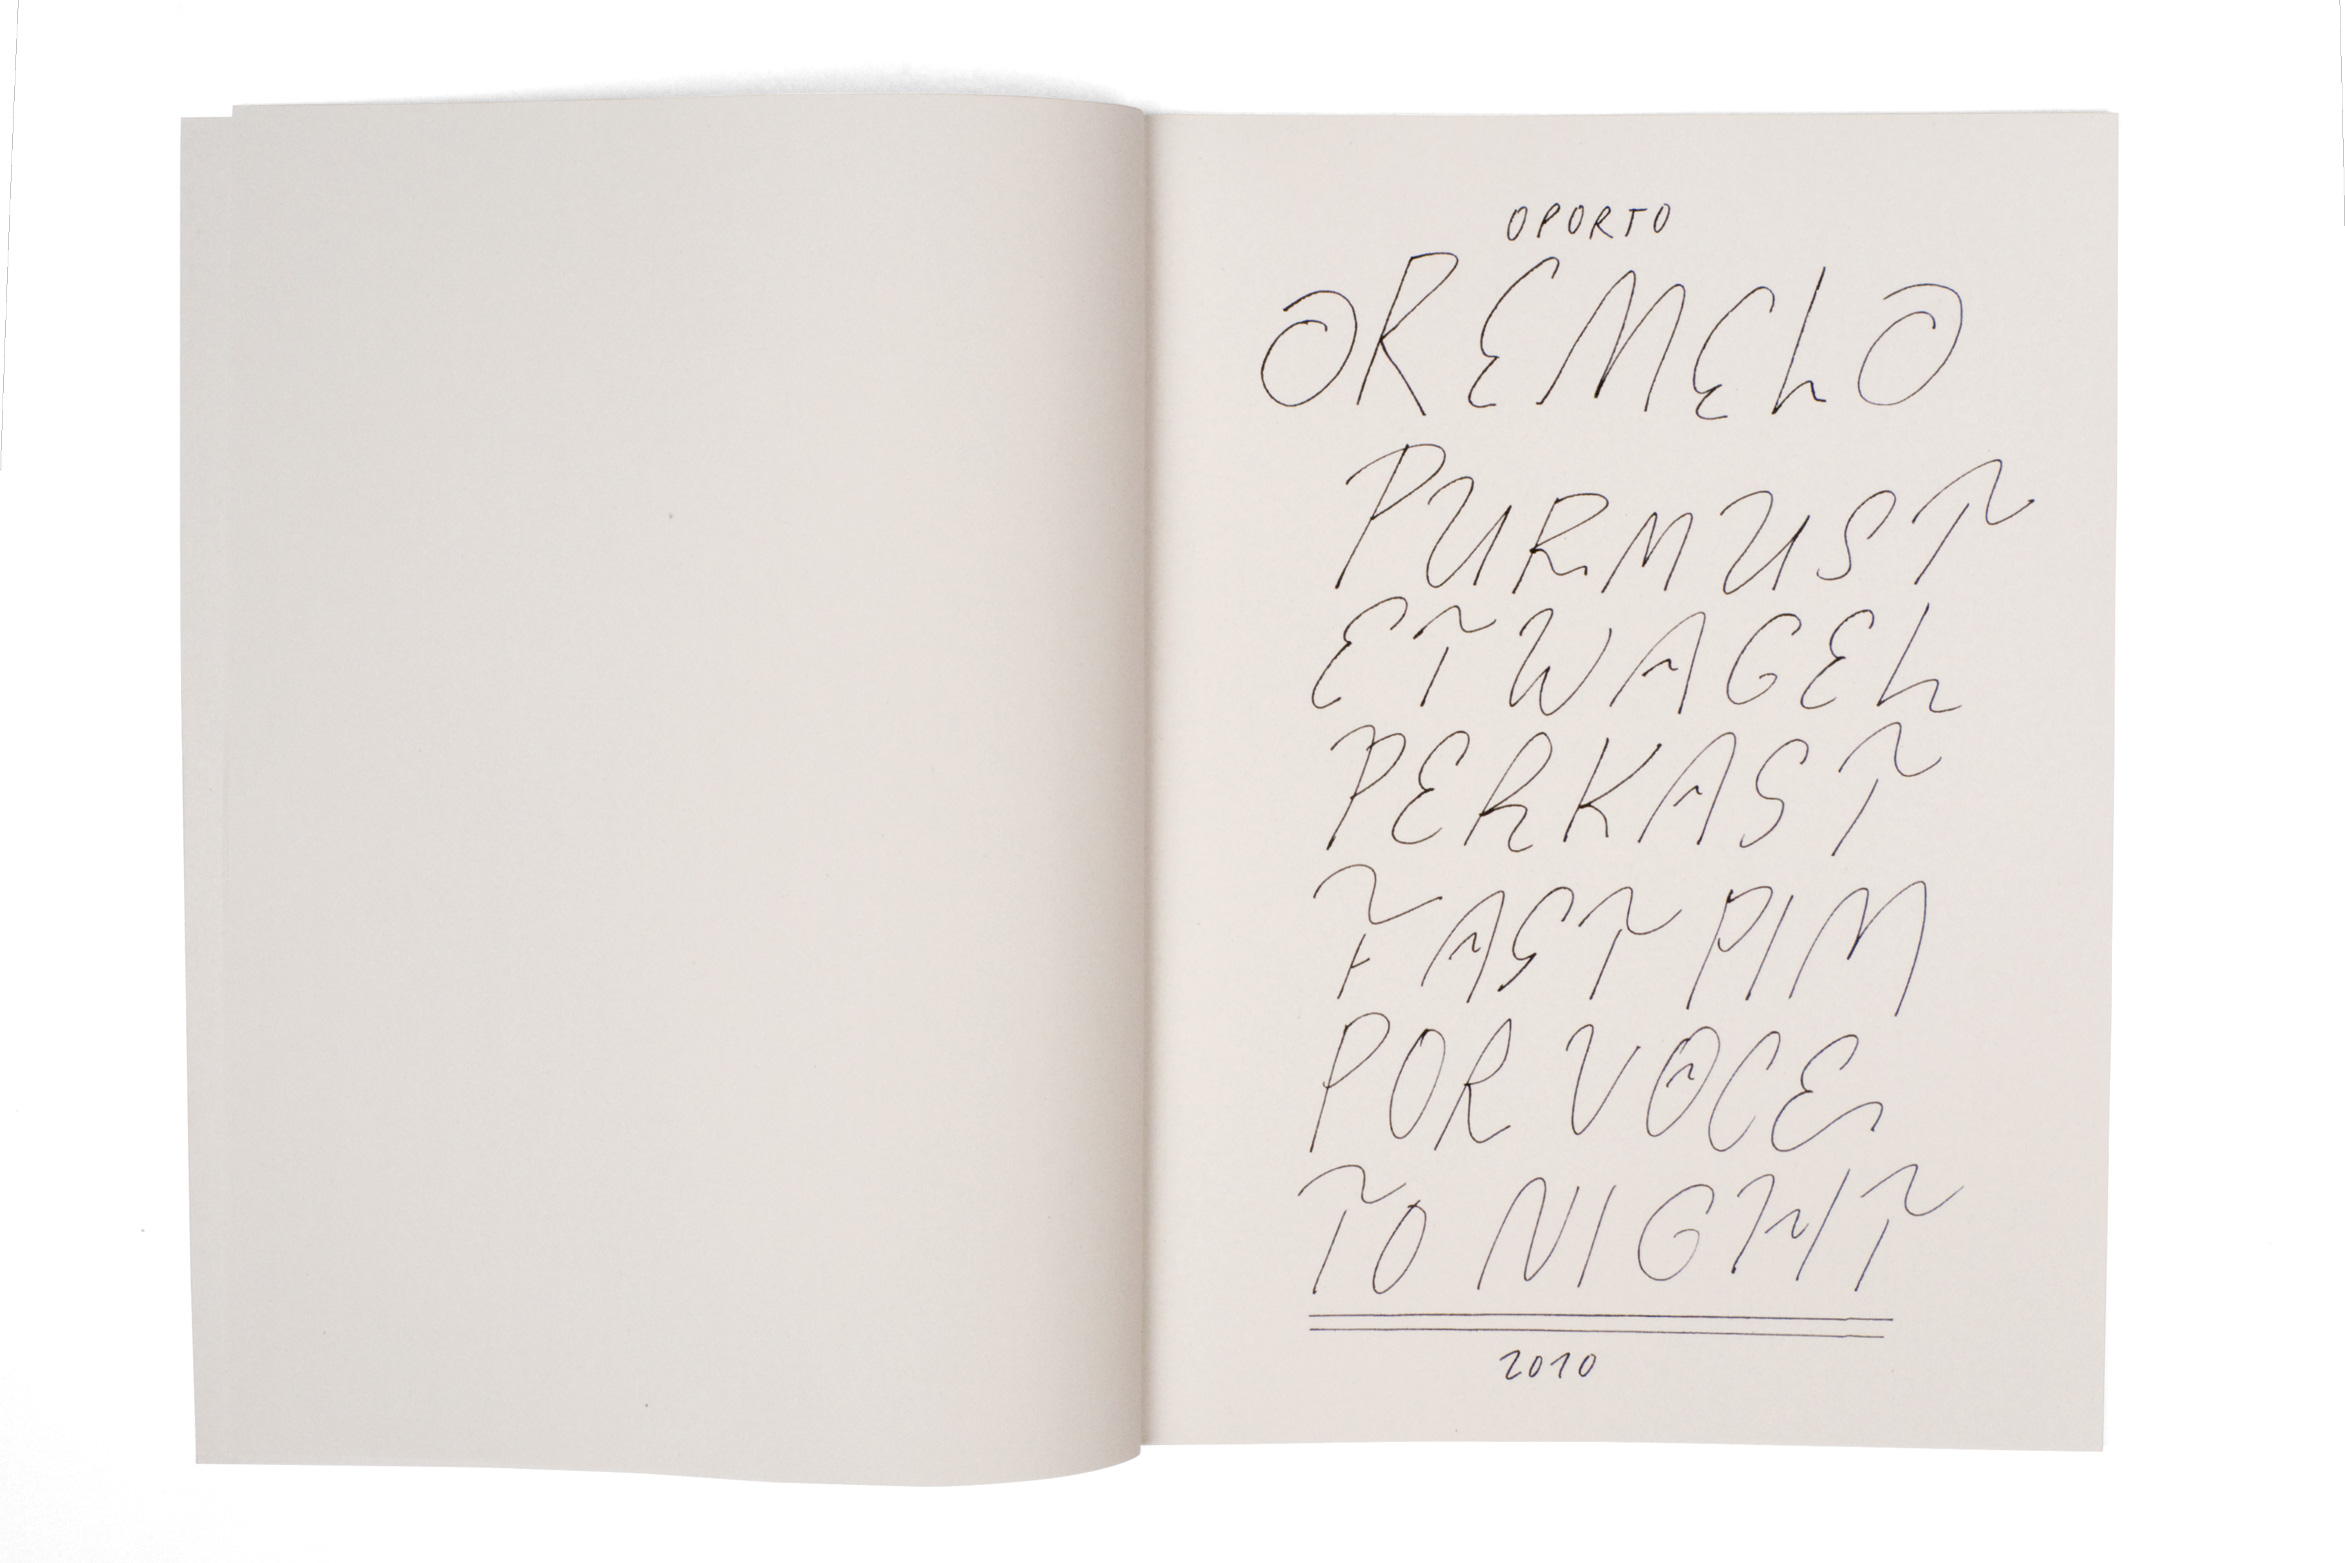 OPORTO
OREMELO
PURMUST
ET WAGEL
PERKAST
FAST PIM
POR VOCE
TO NIGHT
2010